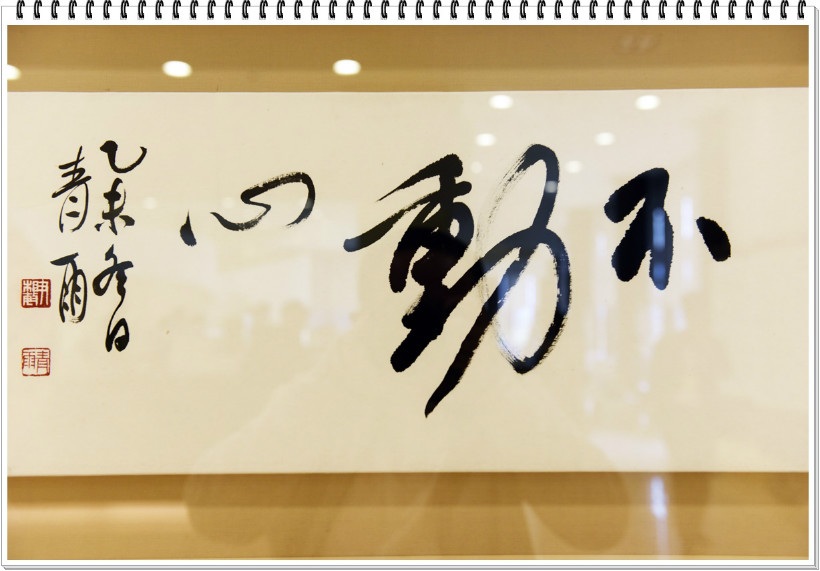 不動心
乙未冬日
青雨